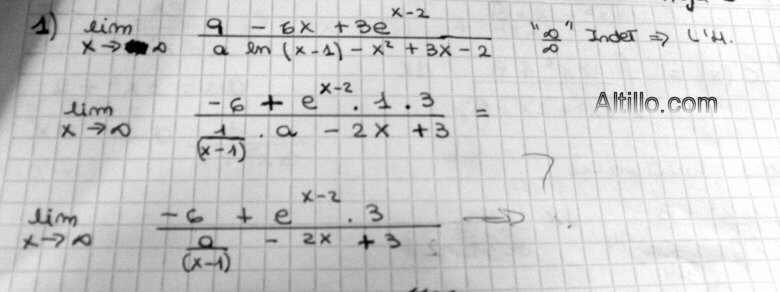 1) lim x→∞ (9 - 6x + 3e^(x-2)) / (a ln (x-1) - x² + 3x - 2) "∞/∞" Indet ⇒ L'H.
lim x→∞ (-6 + e^(x-2) . 1 . 3) / (1/(x-1) . a - 2x + 3) =
Altillo.com
lim x→∞ (-6 + e^(x-2) . 3) / (a/(x-1) - 2x + 3) →